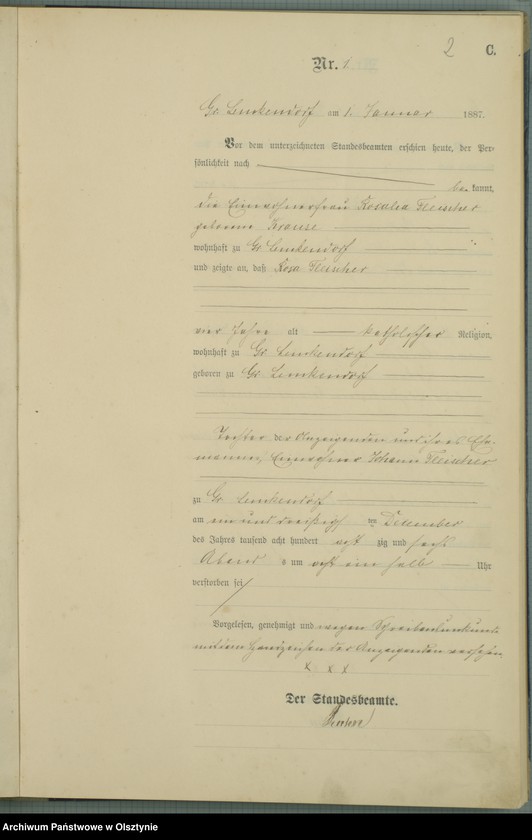 2 C.
Nr. 1.
Gr. Lemkendorf am 1. Januar 1887.
Vor dem unterzeichneten Standesbeamten erschien heute, der Per-
sönlichkeit nach
be kannt,
die Einwohnerfrau Rosalia Fleischer
geborene Krause
wohnhaft zu Gr. Lemkendorf
und zeigte an, daß Rosa Fleischer
vier Jahre alt katholischer Religion,
wohnhaft zu Gr. Lemkendorf
geboren zu Gr. Lemkendorf
Tochter der Anzeigenden und ihres Ehe-
mannes, Einwohner Johann Fleischer
zu Gr. Lemkendorf
am ein und dreißigsten Dezember
des Jahres tausend acht hundert acht zig und sechs
Abends um acht ein halb Uhr
verstorben sei
Vorgelesen, genehmigt und wegen Schreibensunkunde
mit dem Handzeichen der Anzeigenden versehen
x x x
Der Standesbeamte.
Archiwum Państwowe w Olsztynie